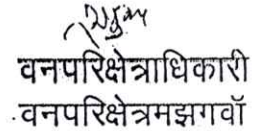 वनपरिक्षेत्राधिकारी
वनपरिक्षेत्रमझगवॉ